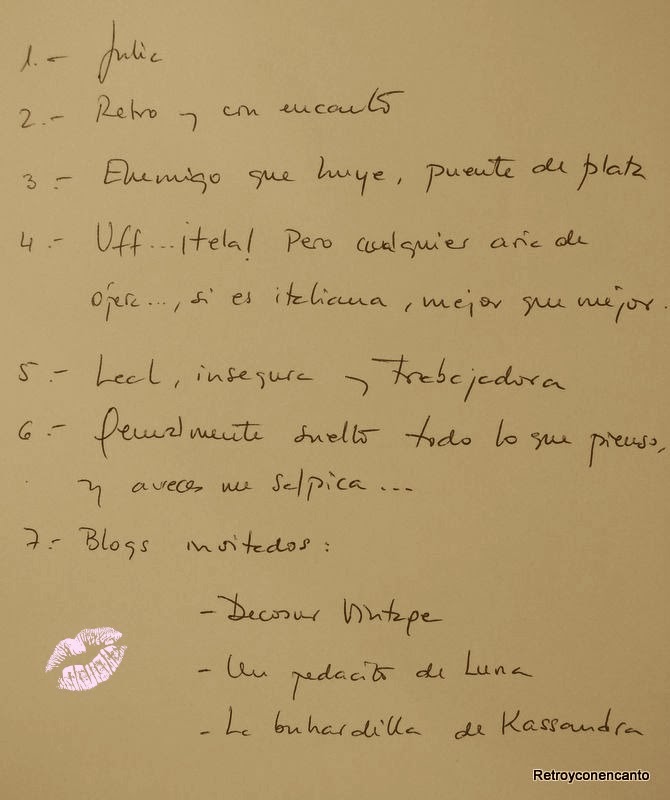 1.- Julia
2.- Retro y con encanto
3.- Enemigo que huye, puente de plata
4.- Uff... ¡tela! Pero cualquier aria de
ópera..., si es italiana, mejor que mejor.
5.- Leal, insegura y trabajadora
6.- Generalmente suelto todo lo que pienso,
y aveces me salpica...
7.- Blogs invitados:
- Decosur Vintage
- Un pedacito de Luna
- La buhardilla de Kassandra
Retroyconencanto